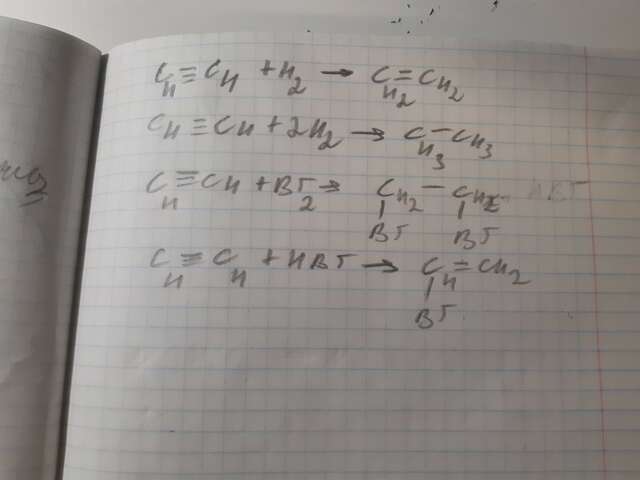 CH≡CH + H2 → CH2=CH2
CH≡CH + 2H2 → CH3-CH3
CH≡CH + Br2 → CH2-CH2
Br Br
CH≡CH + HBr → CH=CH2
Br